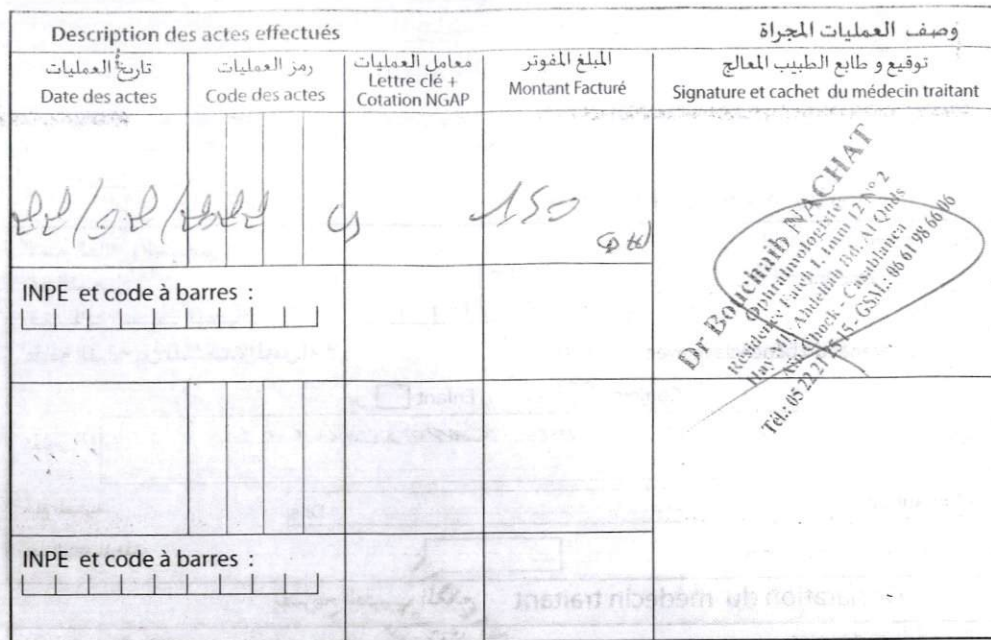 Description des actes effectués
وصف العمليات المجراة
تاريخ العمليات
Date des actes
رمز العمليات
Code des actes
معامل العمليات
Lettre clé +
Cotation NGAP
المبلغ المفوتر
Montant Facturé
توقيع و طابع الطبيب المعالج
Signature et cachet du médecin traitant
150
Dr Bouchaib NACHAT
Ophtalmologiste
Résidence Fateh I, Imm 12 N° 2
Hay My Abdellah Bd. Al Qods
Chock - Casablanca
Tél.: 05 22 21 - GSM.: 06 61 98 66 06
INPE et code à barres :
Enfant
INPE et code à barres :
du médecin traitant